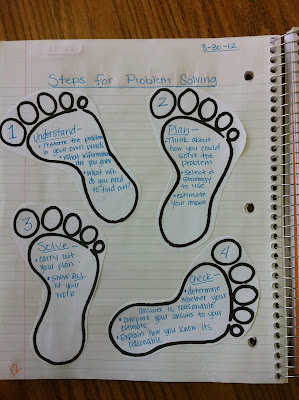 8-30-12
Steps for Problem Solving
1
Understand-
• restate the problem
in your own words
• What information
are you given
• What info
do you need
to find out?
2
Plan-
• Think about
how you could
solve the
problem
• Select a
strategy
to use
• estimate
your answer
3
Solve-
• carry out
your plan
• show ALL
of your
work
4
Check-
• determine
whether your
answer is reasonable
• compare your answer to your
estimate
• Explain how you know it's
reasonable